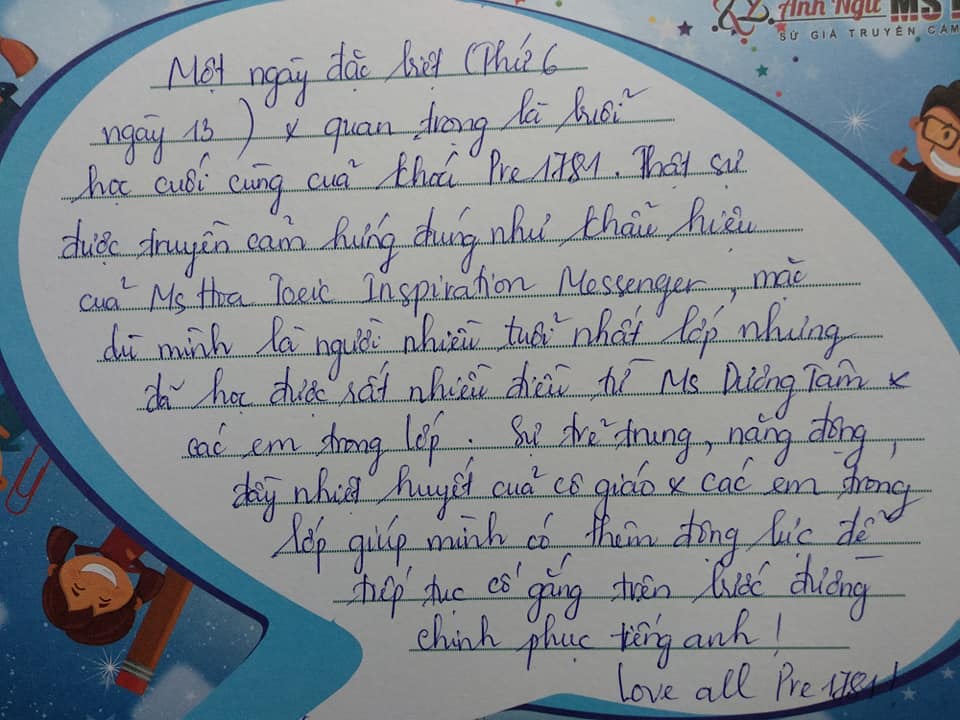 Anh Ngữ MS
SỨ GIẢ TRUYỀN CẢM
Một ngày đặc biệt (Thứ 6
ngày 13) x quan trọng là buổi
học cuối cùng của khoá Pre 1781. Thật sự
được truyền cảm hứng đúng như khẩu hiệu
của Ms Hoa Toeic Inspiration Messenger, mặc
dù mình là người nhiều tuổi nhất lớp nhưng
đã học được rất nhiều điều từ Ms Dương Tâm x
các em trong lớp. Sự trẻ trung, năng động,
đầy nhiệt huyết của cô giáo x các em trong
lớp giúp mình có thêm động lực để
tiếp tục cố gắng trên bước đường
chinh phục tiếng anh!
Love all Pre 1781!